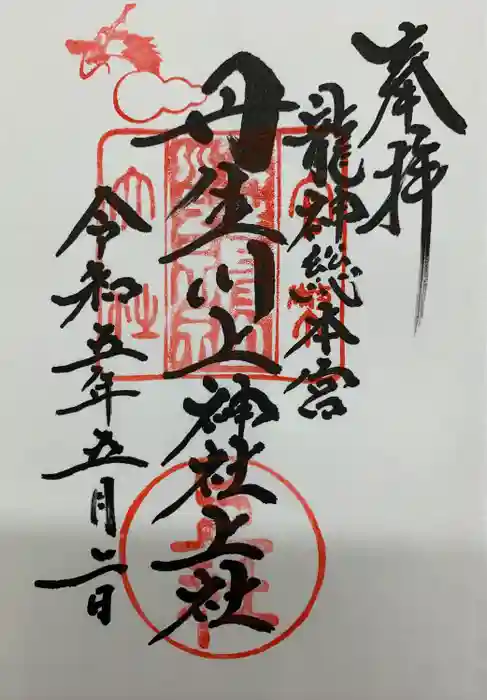 奉拝
龍神総本宮
丹生川上神社上社
令和五年五月二日